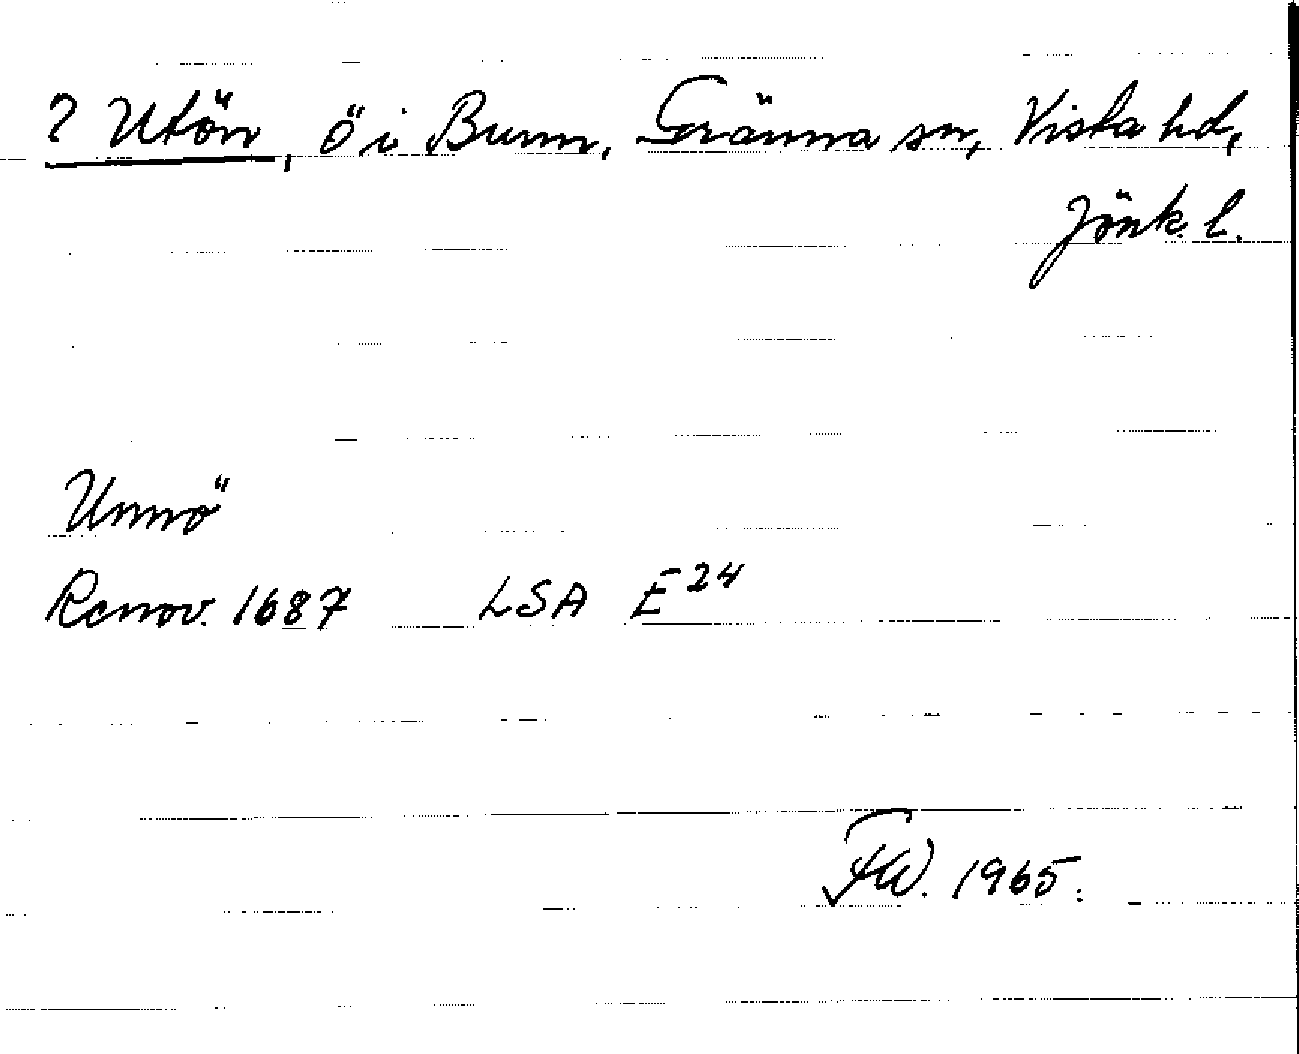 ? Utön, ö i Bunn, Gränna sn, Vista hd,
Jönk. l.
Unnö
Renov. 1687 LSA E 24
FW. 1965.